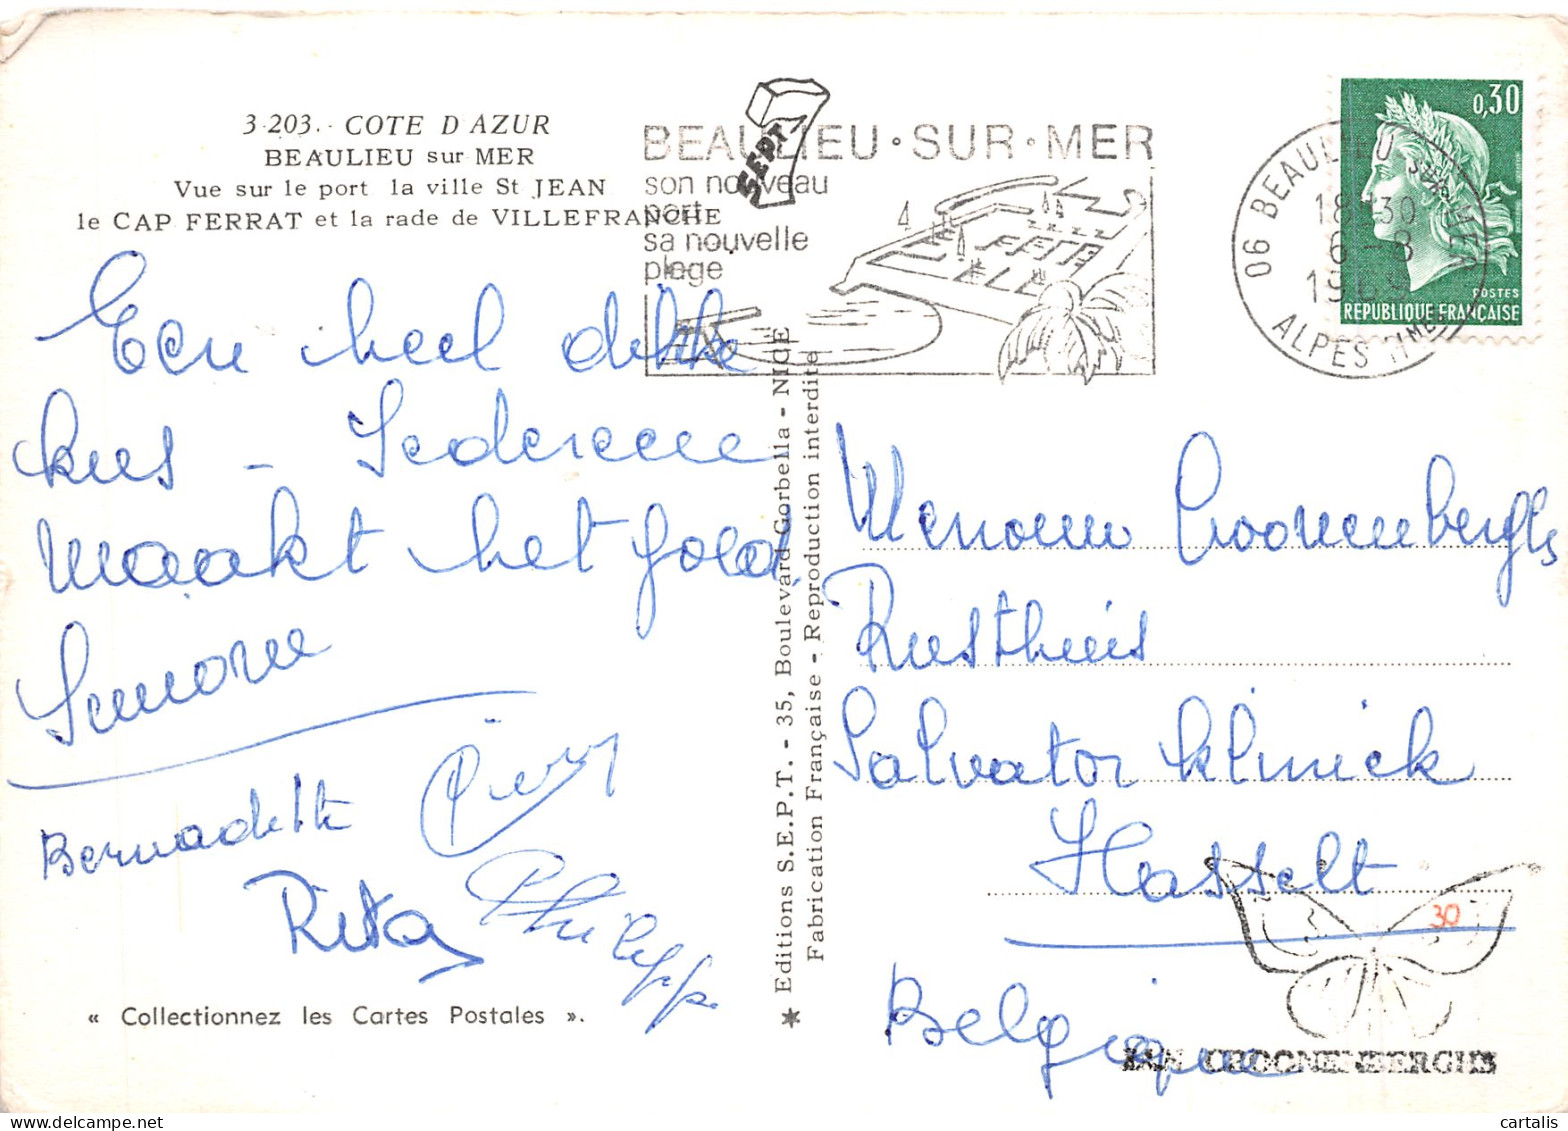 3-203. - COTE D'AZUR
BEAULIEU sur MER
Vue sur le port la ville St JEAN
le CAP FERRAT et la rade de VILLEFRANCHE
SEPT
BEAULIEU • SUR • MER
son nouveau
port
sa nouvelle
plage
0,30
POSTES
REPUBLIQUE FRANÇAISE
06 BEAULIEU SUR MER
18-30
6-8
1969
ALPES MMES
Een heel dikke
kus - Iedereen
maakt het goed
Simonne
Bernadette
Rita
Philippe
« Collectionnez les Cartes Postales ».
Editions S.E.P.T. - 35, Boulevard Gorbella - NICE
Fabrication Française - Reproduction interdite
Croonenberghs
Rusthuis
Salvator kliniek
Hasselt
30
Belgique
JAN CROONENBERGHS
cartalis